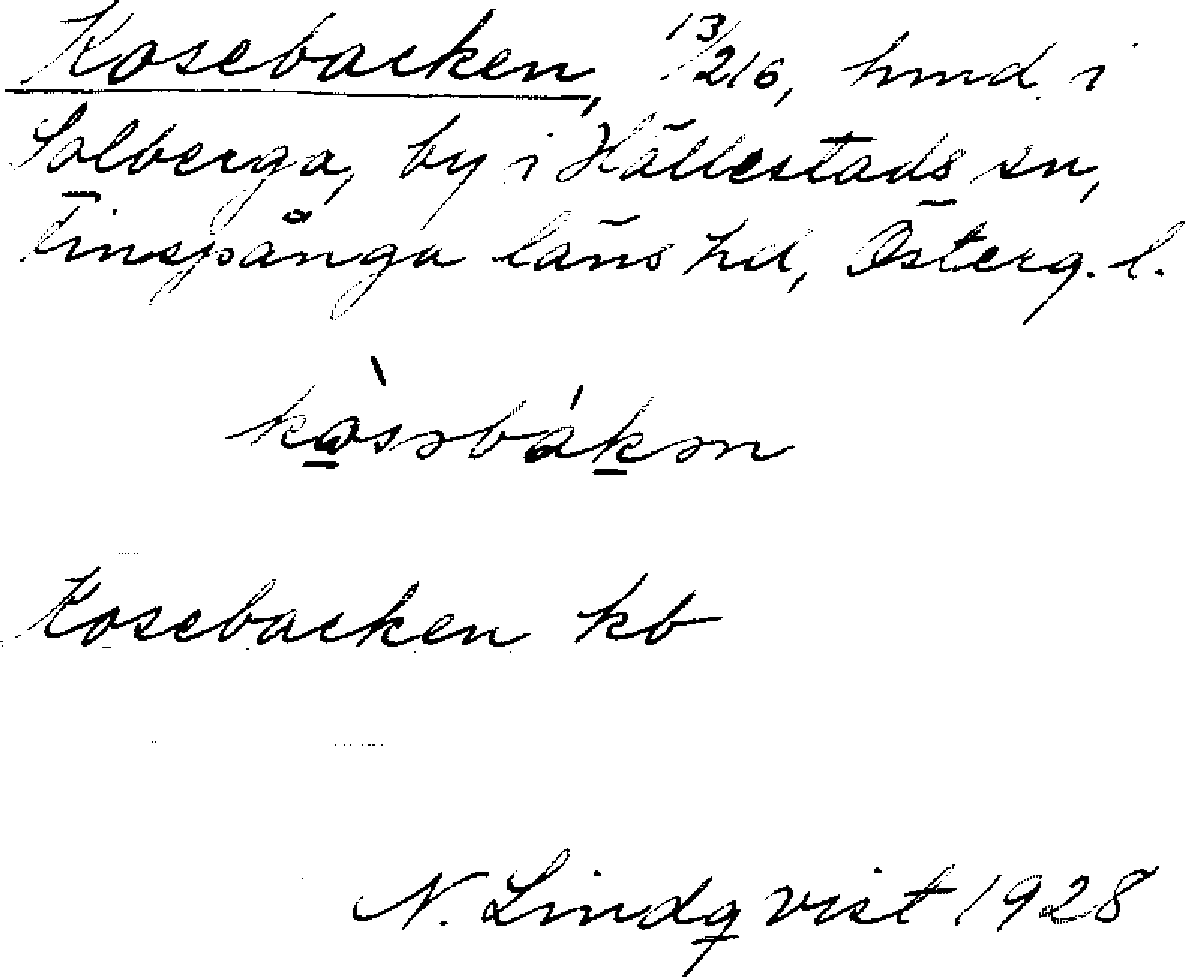 Kosebacken, 13/216, hmd i
Solberga, by i Hällestads sn,
Finspånga läns hd, Österg. l.
kòsəbákən
Kosebacken kb
N. Lindqvist 1928